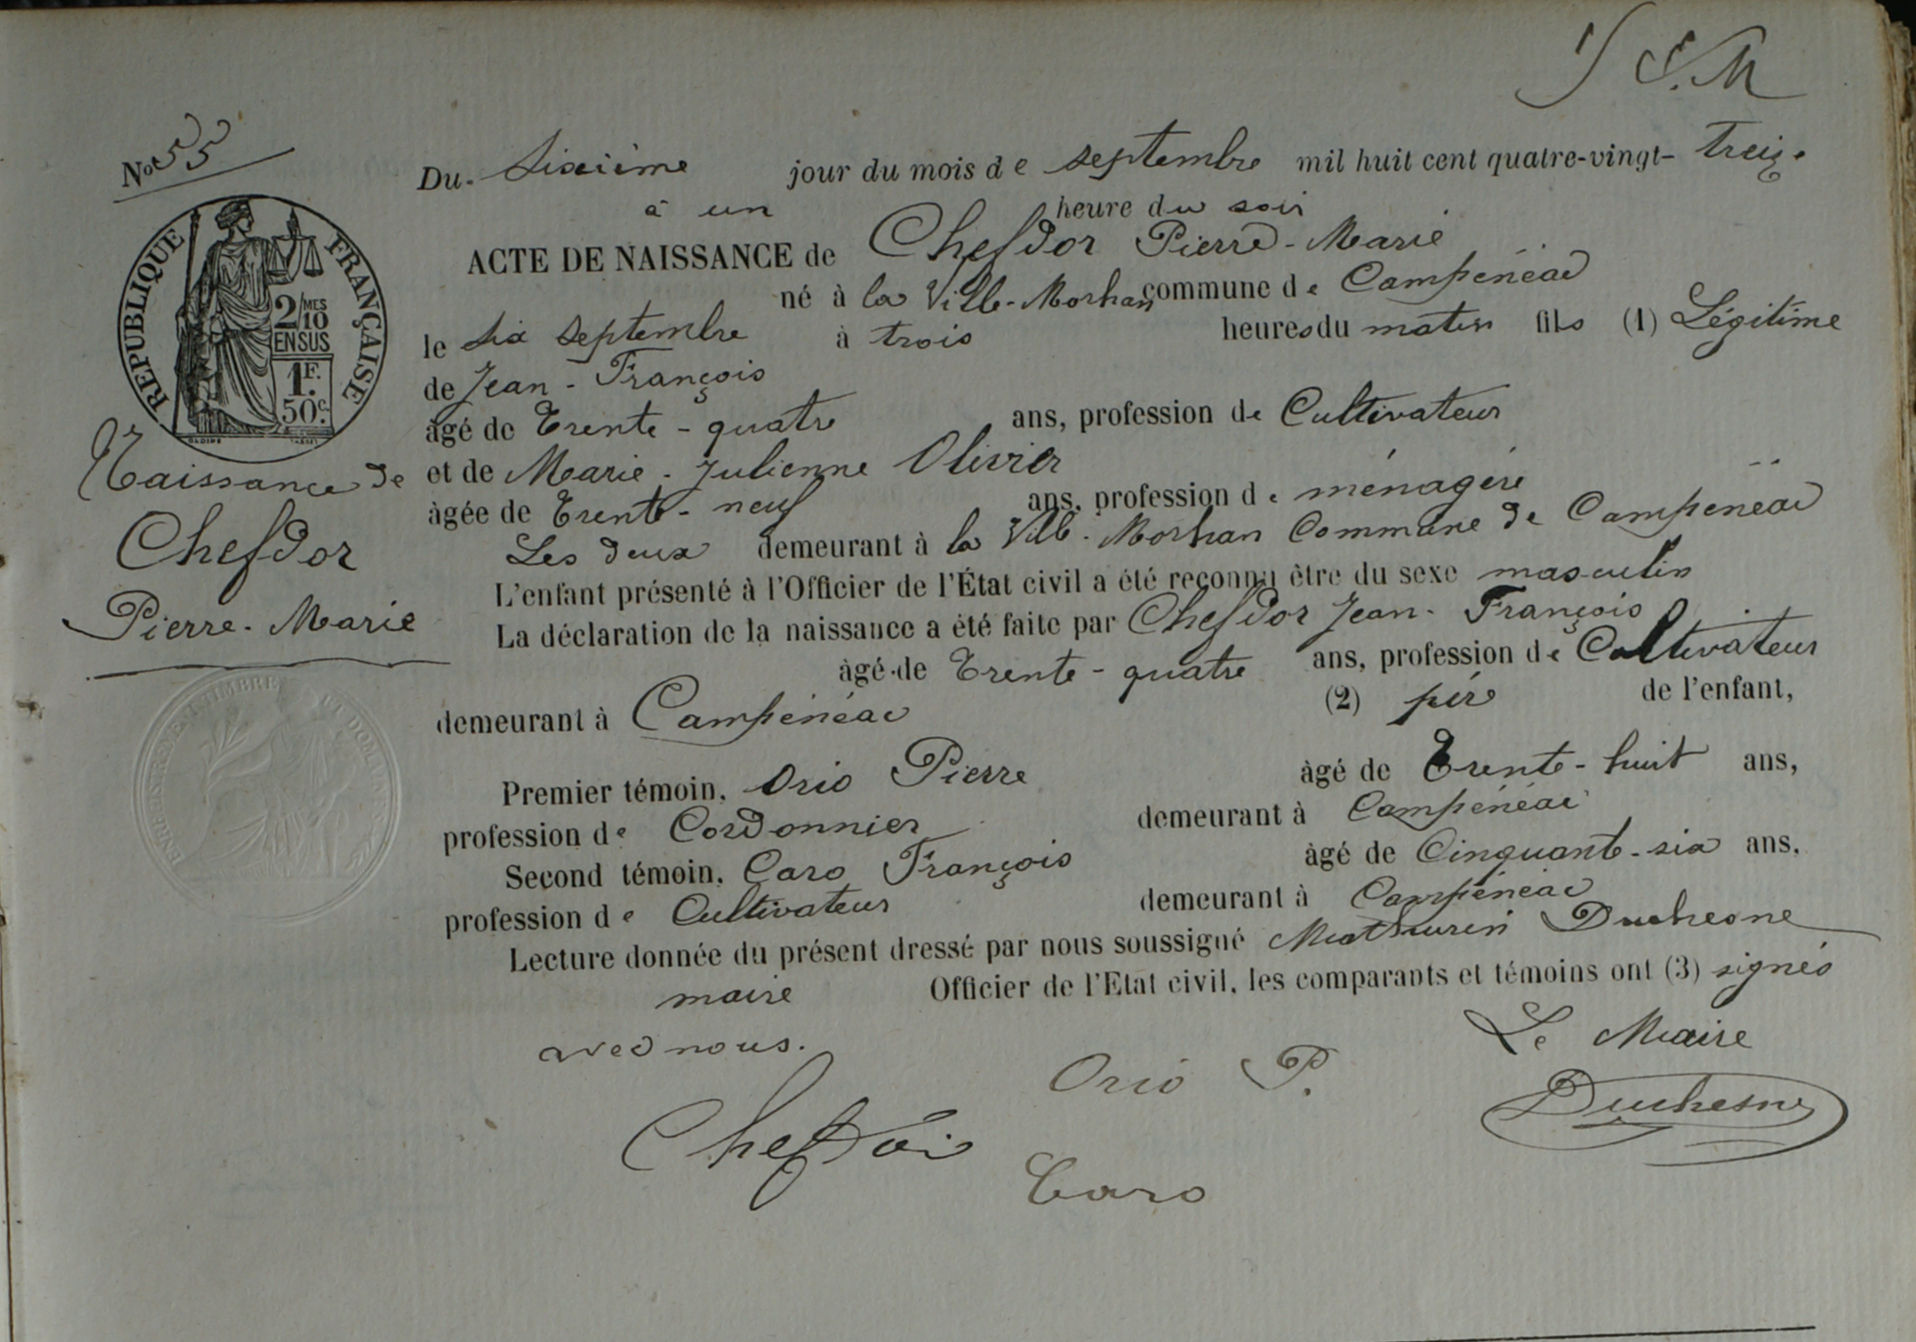 1/ S.M
No 55
Du Sixième jour du mois de septembre mil huit cent quatre-vingt-treize
à un heure du soir
ACTE DE NAISSANCE de Chefdor Pierre-Marie
né à la Ville-Morhan commune de Campénéac
le six septembre à trois heures du matin fils (1) Légitime
de Jean-François
âgé de Trente-quatre ans, profession de Cultivateur
et de Marie-Julienne Olivier
âgée de Trente-neuf ans, profession de ménagère
Les deux demeurant à la Ville-Morhan Commune de Campénéac
L'enfant présenté à l'Officier de l'État civil a été reconnu être du sexe masculin
La déclaration de la naissance a été faite par Chefdor Jean-François
âgé de Trente-quatre ans, profession de Cultivateur
demeurant à Campénéac (2) père de l'enfant,
Premier témoin, Orio Pierre âgé de Trente-huit ans,
profession de Cordonnier demeurant à Campénéac
Second témoin, Caro François âgé de Cinquante-six ans,
profession de Cultivateur demeurant à Campénéac
Lecture donnée du présent dressé par nous soussigné Mathurin Duchesne
maire Officier de l'Etat civil, les comparants et témoins ont (3) signés
avec nous.
Le Maire
Orio P.
Duchesne
Chefdor
Caro
REPUBLIQUE FRANÇAISE
2/MES
10
EN SUS
1F.
50c.
Naissance de
Chefdor
Pierre-Marie